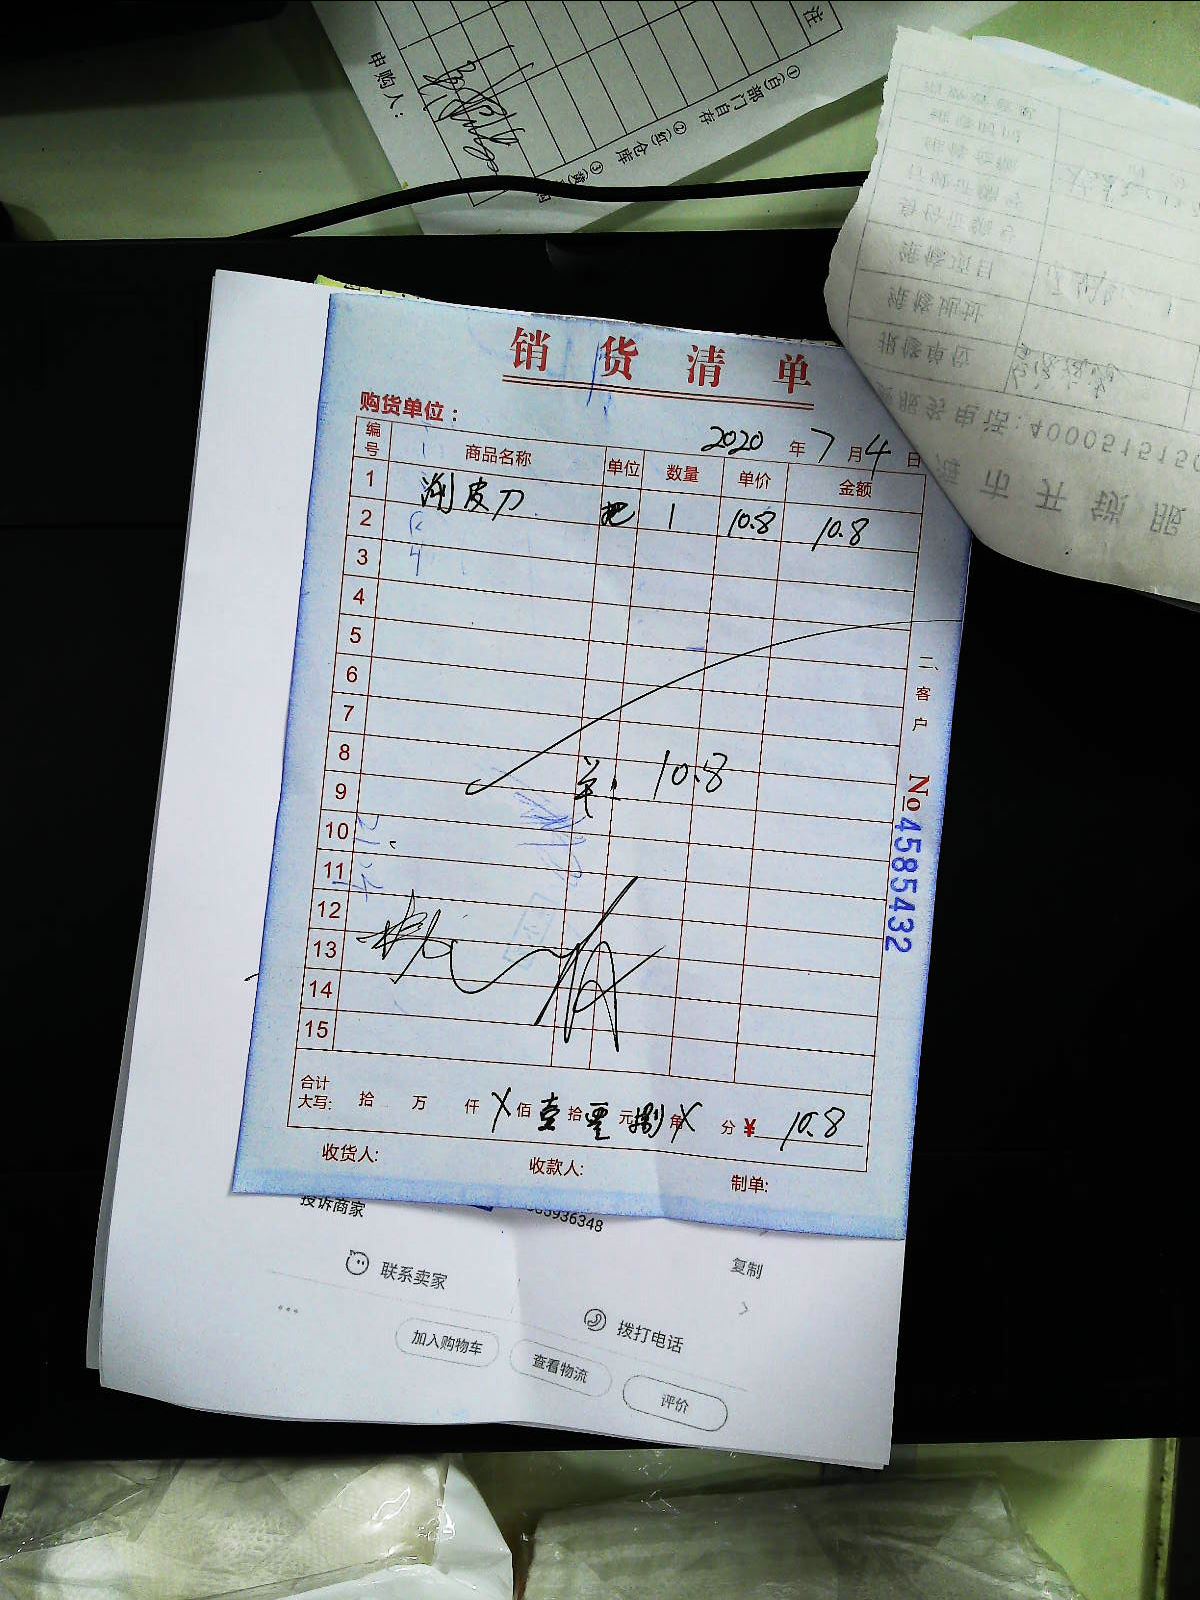 注
申购人：
①(白)部门自存 ②(红)仓库 ③(黄)
销货清单
购货单位：
2020 年 7 月 4 日
编号 商品名称 单位 数量 单价 金额
1 削皮刀 把 1 10.8 10.8
2
3
4
5
6
7
8
9
10.8
10
11
12
13
14
15
二、客户
No 4585432
合计大写： 拾 万 仟 X 佰 壹 拾 零 元 捌 角 X 分 ¥ 10.8
收货人:
收款人:
制单:
维修项目
维修地址
报修单位
服务电话:4000515150
市开锁服
投诉商家
936348
复制
联系卖家
拨打电话
加入购物车
查看物流
评价